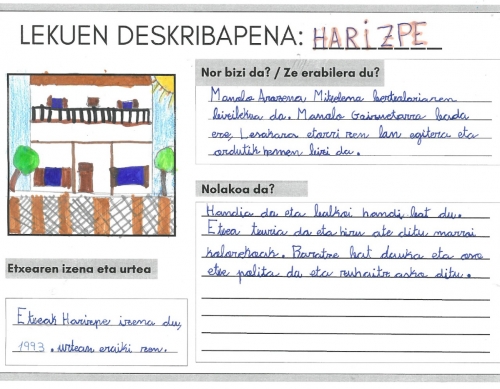 LEKUEN DESKRIBAPENA: HARIZPE
Nor bizi da? / Ze erabilera du?
Manolo Arozena Mitxelena bertsolariaren
bizilekua da. Manolo Goizuetarra bada
ere, Lesakara etorri zen lan egitera eta
ordutik hemen bizi da.
Nolakoa da?
Handia da eta balkoi handi bat du.
Etxea txuria da eta hiru ate ditu marroi
kolorekoak. Baratze bat dauka eta oso
etxe polita da eta zuhaitz asko ditu.
Etxearen izena eta urtea
Etxeak Harizpe izena du,
1993. urtean eraiki zen.